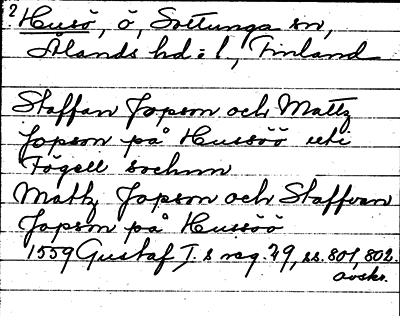 2 Husö, ö, Sottunga sn,
Ålands hd:l, Finland
Staffan Jopson och Mattz
Jopson på Hussöö uti
Fögell sochnn
Mattz Jopson och Staffvan
Jopson på Hussöö
1559 Gustaf I.s reg. 29, ss. 801, 802.
avskr.